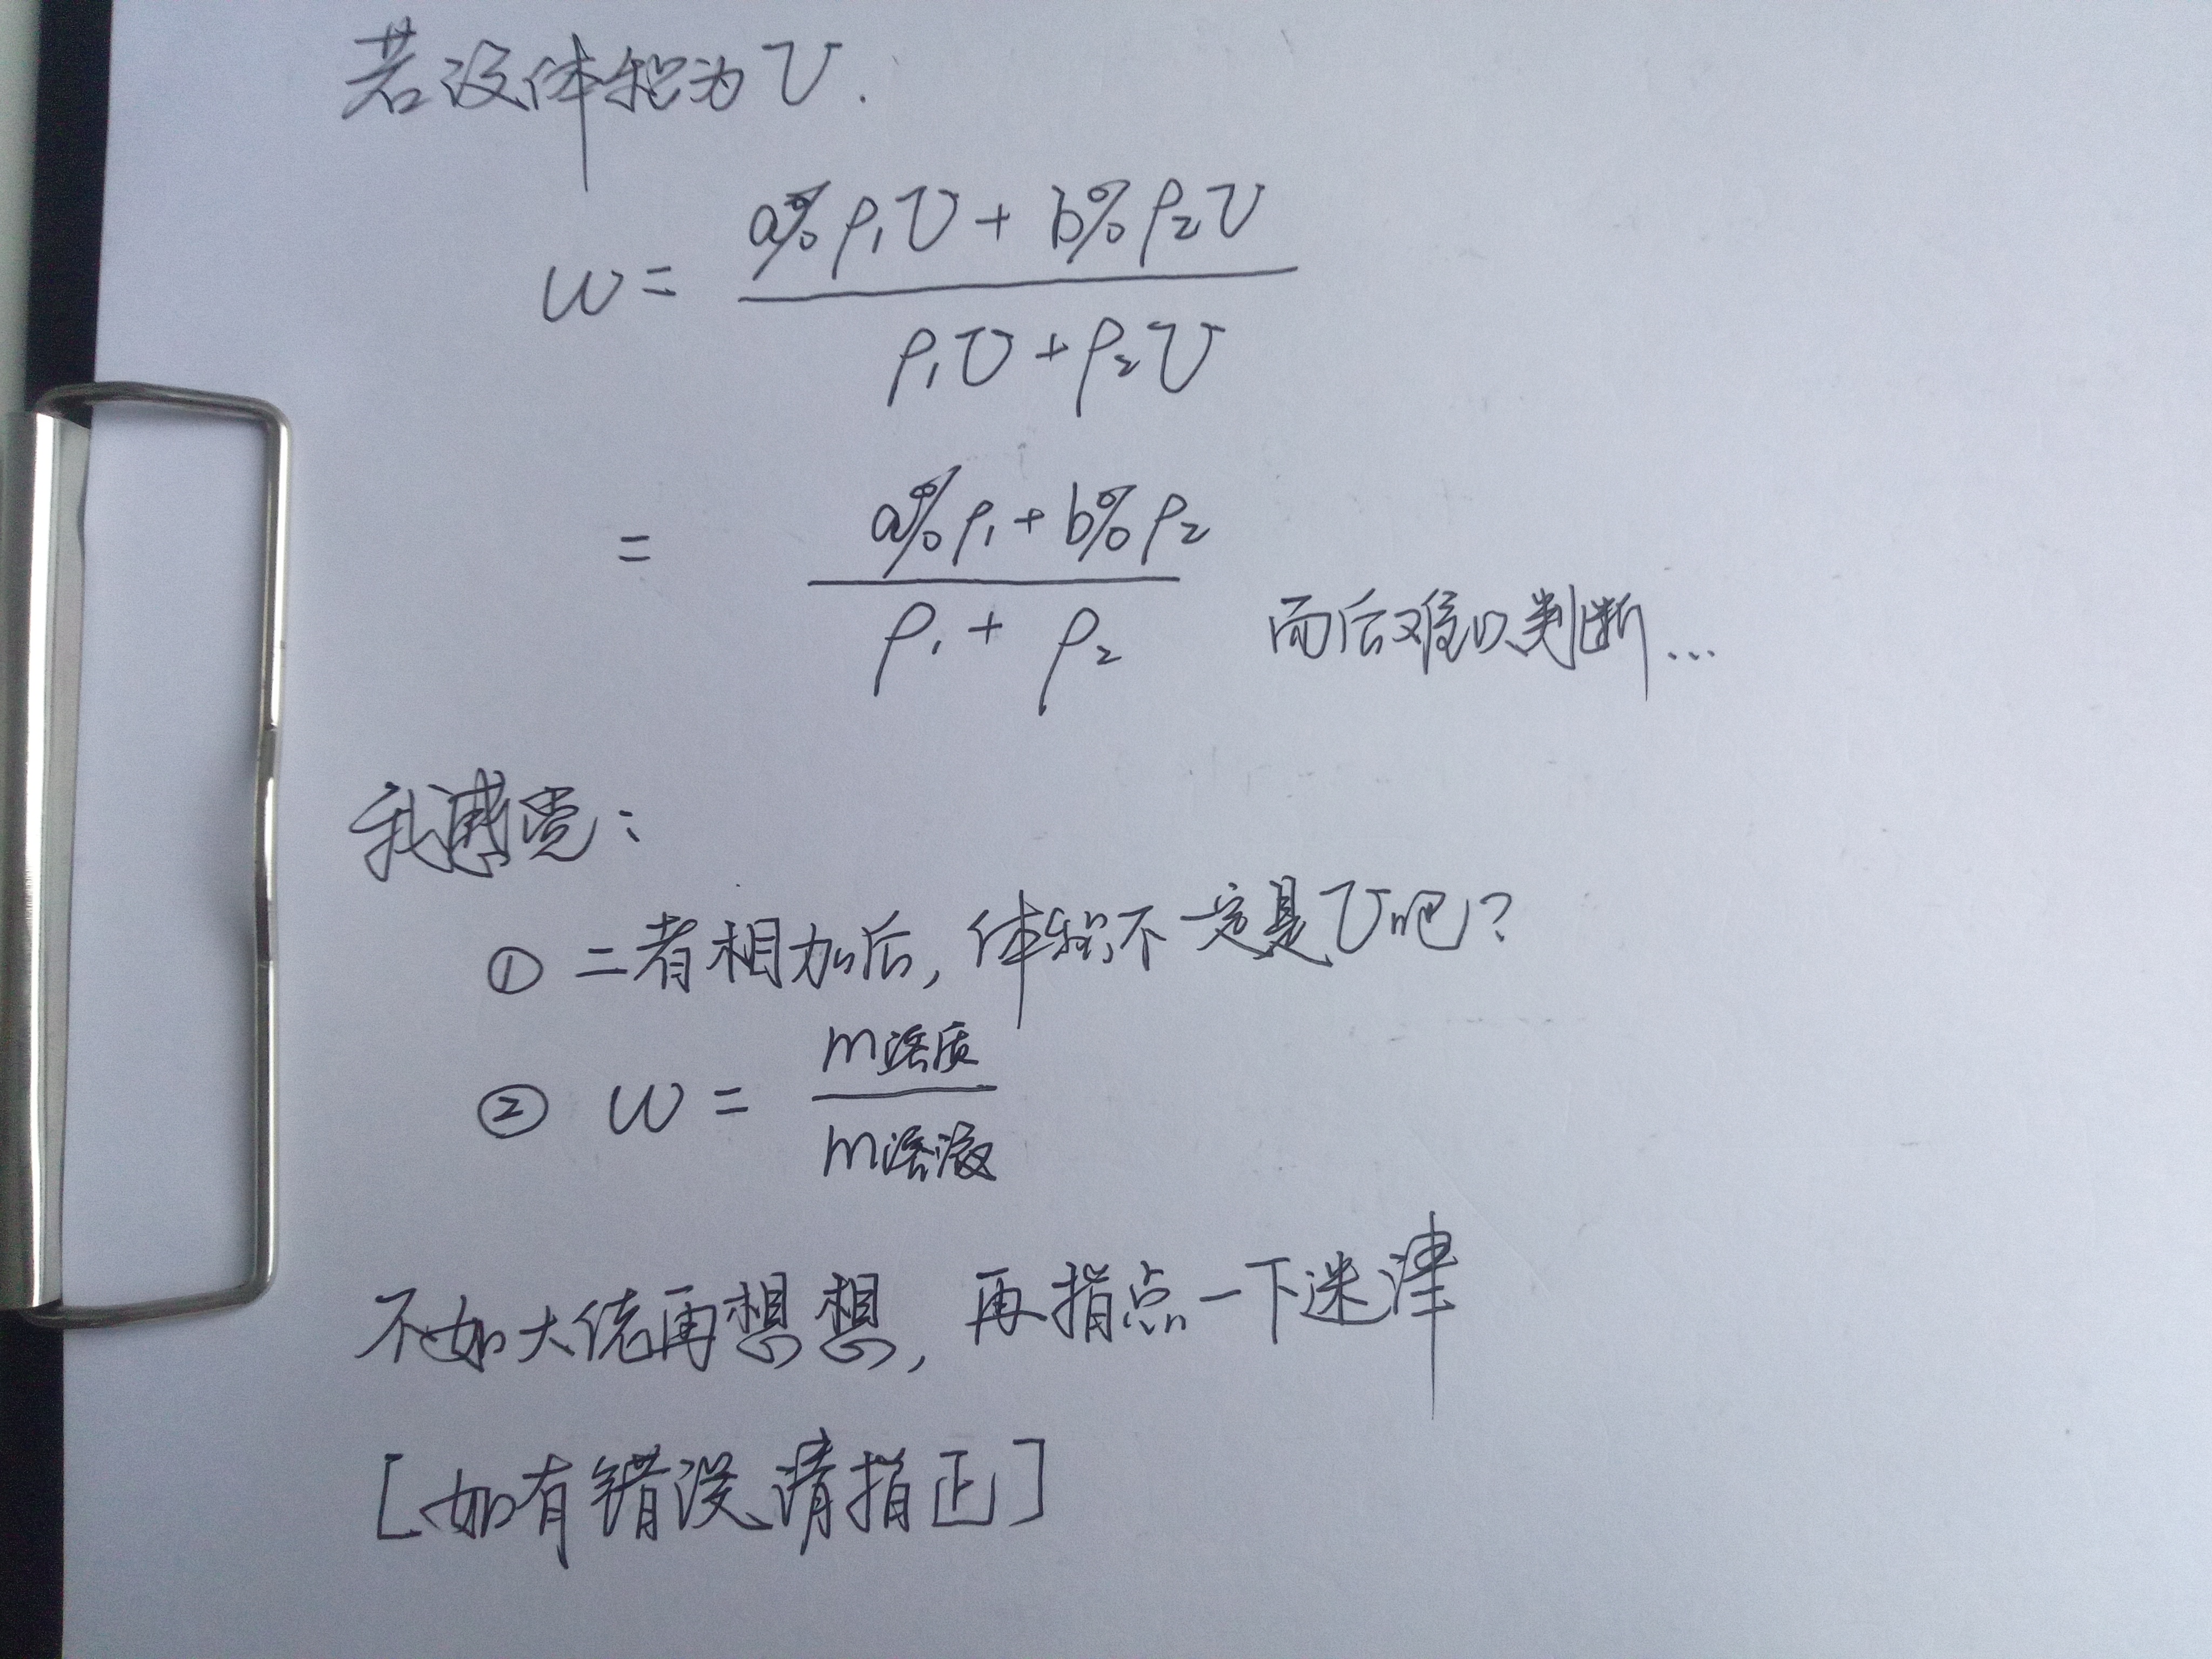 若设体积为V.
w = (a%ρ₁V + b%ρ₂V) / (ρ₁V + ρ₂V)
= (a%ρ₁ + b%ρ₂) / (ρ₁ + ρ₂) 而后难以判断…
我感觉：
① 二者相加后，体积不一定是V吧？
② w = m溶质 / m溶液
不如大佬再想想，再指点一下迷津
[如有错误，请指正]